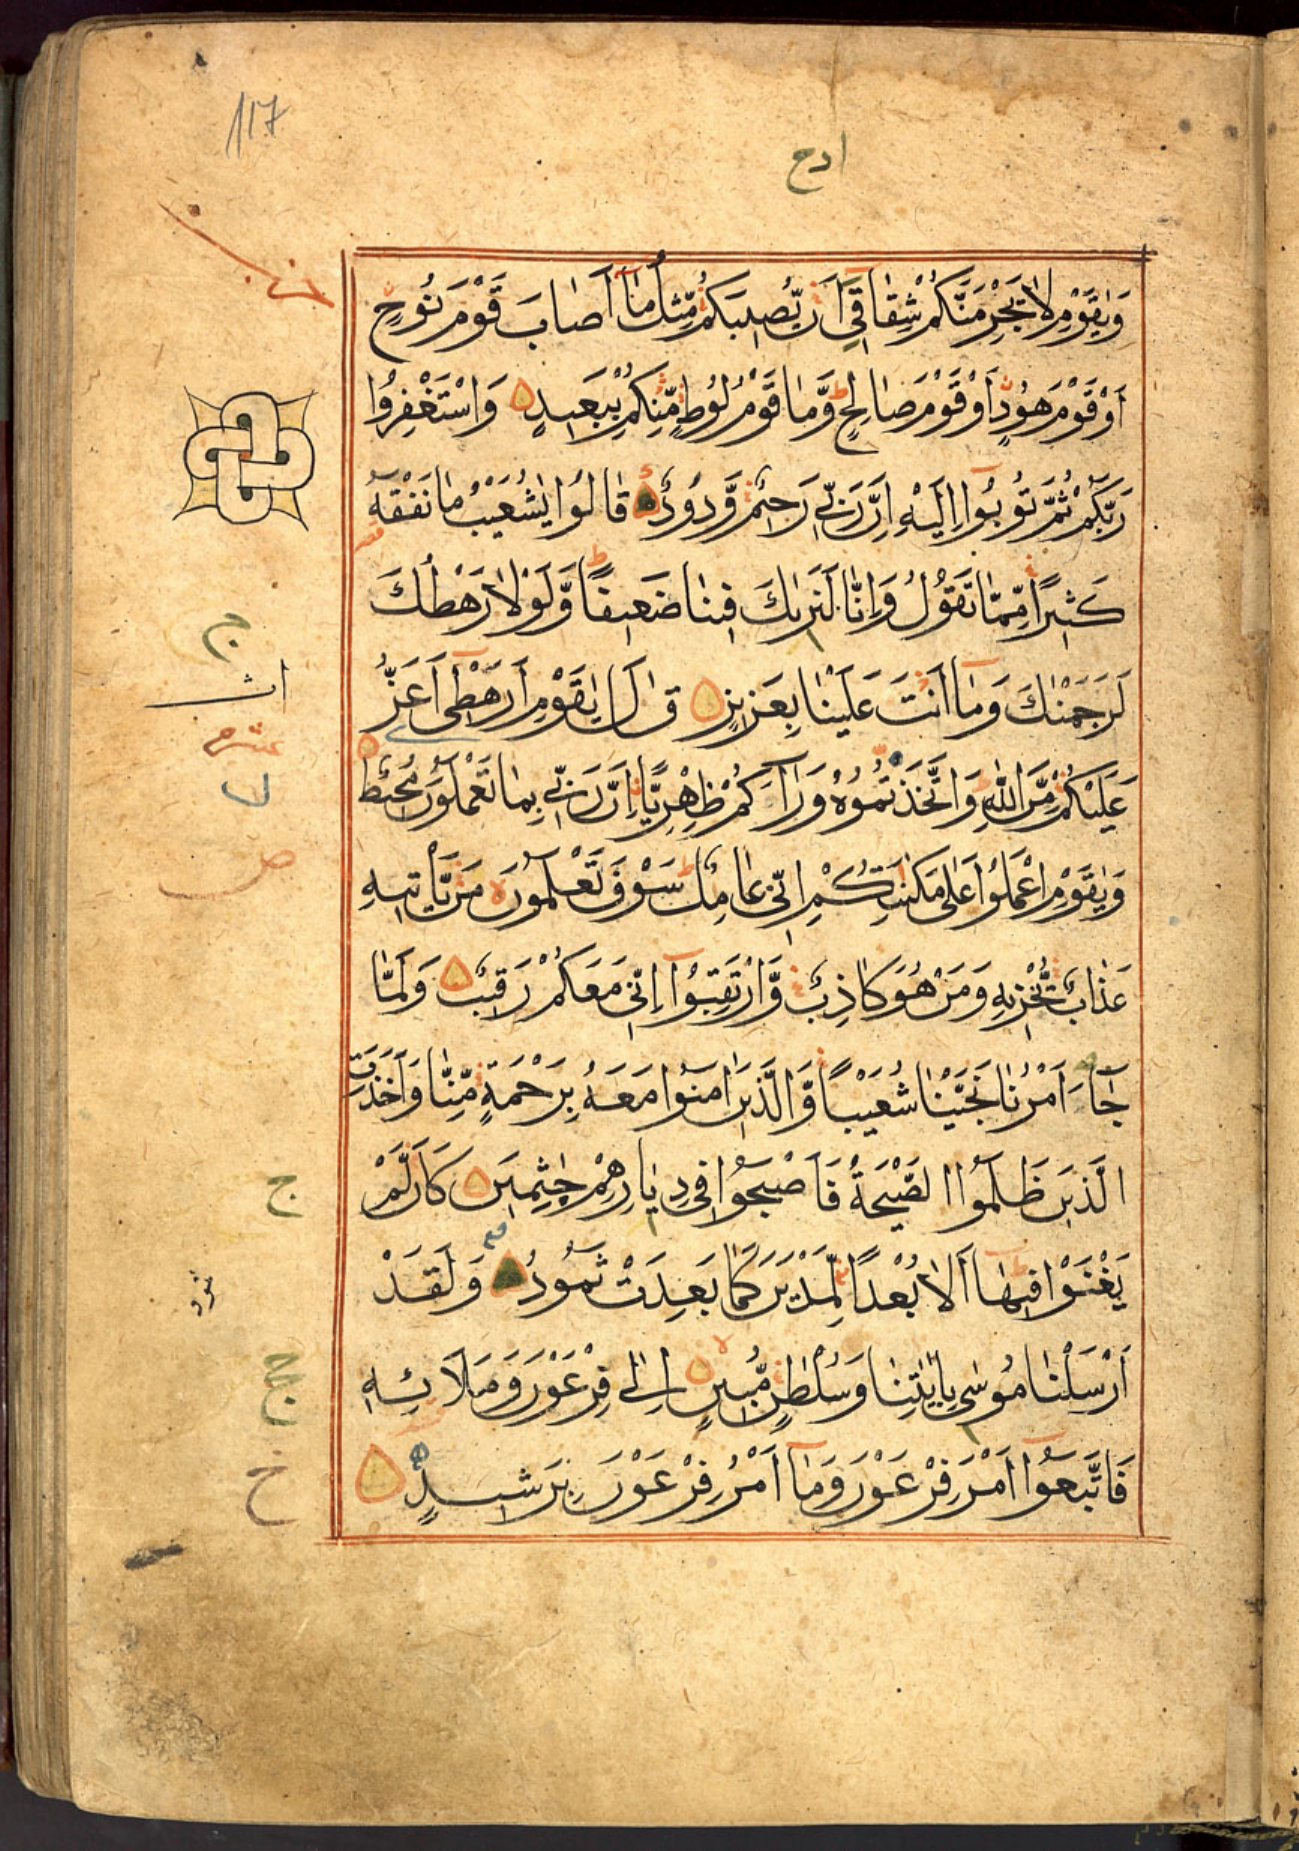 117
وَيٰقَوْمِ لَا يَجْرِمَنَّكُمْ شِقَاقِيٓ اَنْ يُّصِيْبَكُمْ مِّثْلُ مَآ اَصَابَ قَوْمَ نُوْحٍ
اَوْ قَوْمَ هُوْدٍ اَوْ قَوْمَ صَالِحٍ وَّمَا قَوْمُ لُوْطٍ مِّنْكُمْ بِبَعِيْدٍ وَاسْتَغْفِرُوْا
رَبَّكُمْ ثُمَّ تُوْبُوْٓا اِلَيْهِ اِنَّ رَبِّيْ رَحِيْمٌ وَّدُوْدٌ قَالُوْا يٰشُعَيْبُ مَا نَفْقَهُ
كَثِيْرًا مِّمَّا تَقُوْلُ وَاِنَّا لَنَرٰىكَ فِيْنَا ضَعِيْفًا وَّلَوْلَا رَهْطُكَ
لَرَجَمْنٰكَ وَمَآ اَنْتَ عَلَيْنَا بِعَزِيْزٍ قَالَ يٰقَوْمِ اَرَهْطِيٓ اَعَزُّ
عَلَيْكُمْ مِّنَ اللّٰهِ وَاتَّخَذْتُمُوْهُ وَرَآءَكُمْ ظِهْرِيًّا اِنَّ رَبِّيْ بِمَا تَعْمَلُوْنَ مُحِيْطٌ
وَيٰقَوْمِ اعْمَلُوْا عَلٰى مَكَانَتِكُمْ اِنِّيْ عَامِلٌ سَوْفَ تَعْلَمُوْنَ مَنْ يَّأْتِيْهِ
عَذَابٌ يُّخْزِيْهِ وَمَنْ هُوَ كَاذِبٌ وَّارْتَقِبُوْٓا اِنِّيْ مَعَكُمْ رَقِيْبٌ وَلَمَّا
جَآءَ اَمْرُنَا نَجَّيْنَا شُعَيْبًا وَّالَّذِيْنَ اٰمَنُوْا مَعَهُ بِرَحْمَةٍ مِّنَّا وَاَخَذَتِ
الَّذِيْنَ ظَلَمُوا الصَّيْحَةُ فَاَصْبَحُوْا فِيْ دِيَارِهِمْ جٰثِمِيْنَ كَاَنْ لَّمْ
يَغْنَوْا فِيْهَا اَلَا بُعْدًا لِّمَدْيَنَ كَمَا بَعِدَتْ ثَمُوْدُ وَلَقَدْ
اَرْسَلْنَا مُوْسٰى بِاٰيٰتِنَا وَسُلْطٰنٍ مُّبِيْنٍ اِلٰى فِرْعَوْنَ وَمَلَا۟ئِهِ
فَاتَّبَعُوْٓا اَمْرَ فِرْعَوْنَ وَمَآ اَمْرُ فِرْعَوْنَ بِرَشِيْدٍ